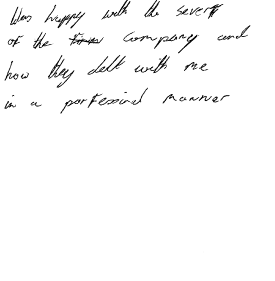 Was happy with the severty
of the company and
how they delt with me
in a porfessinal manner